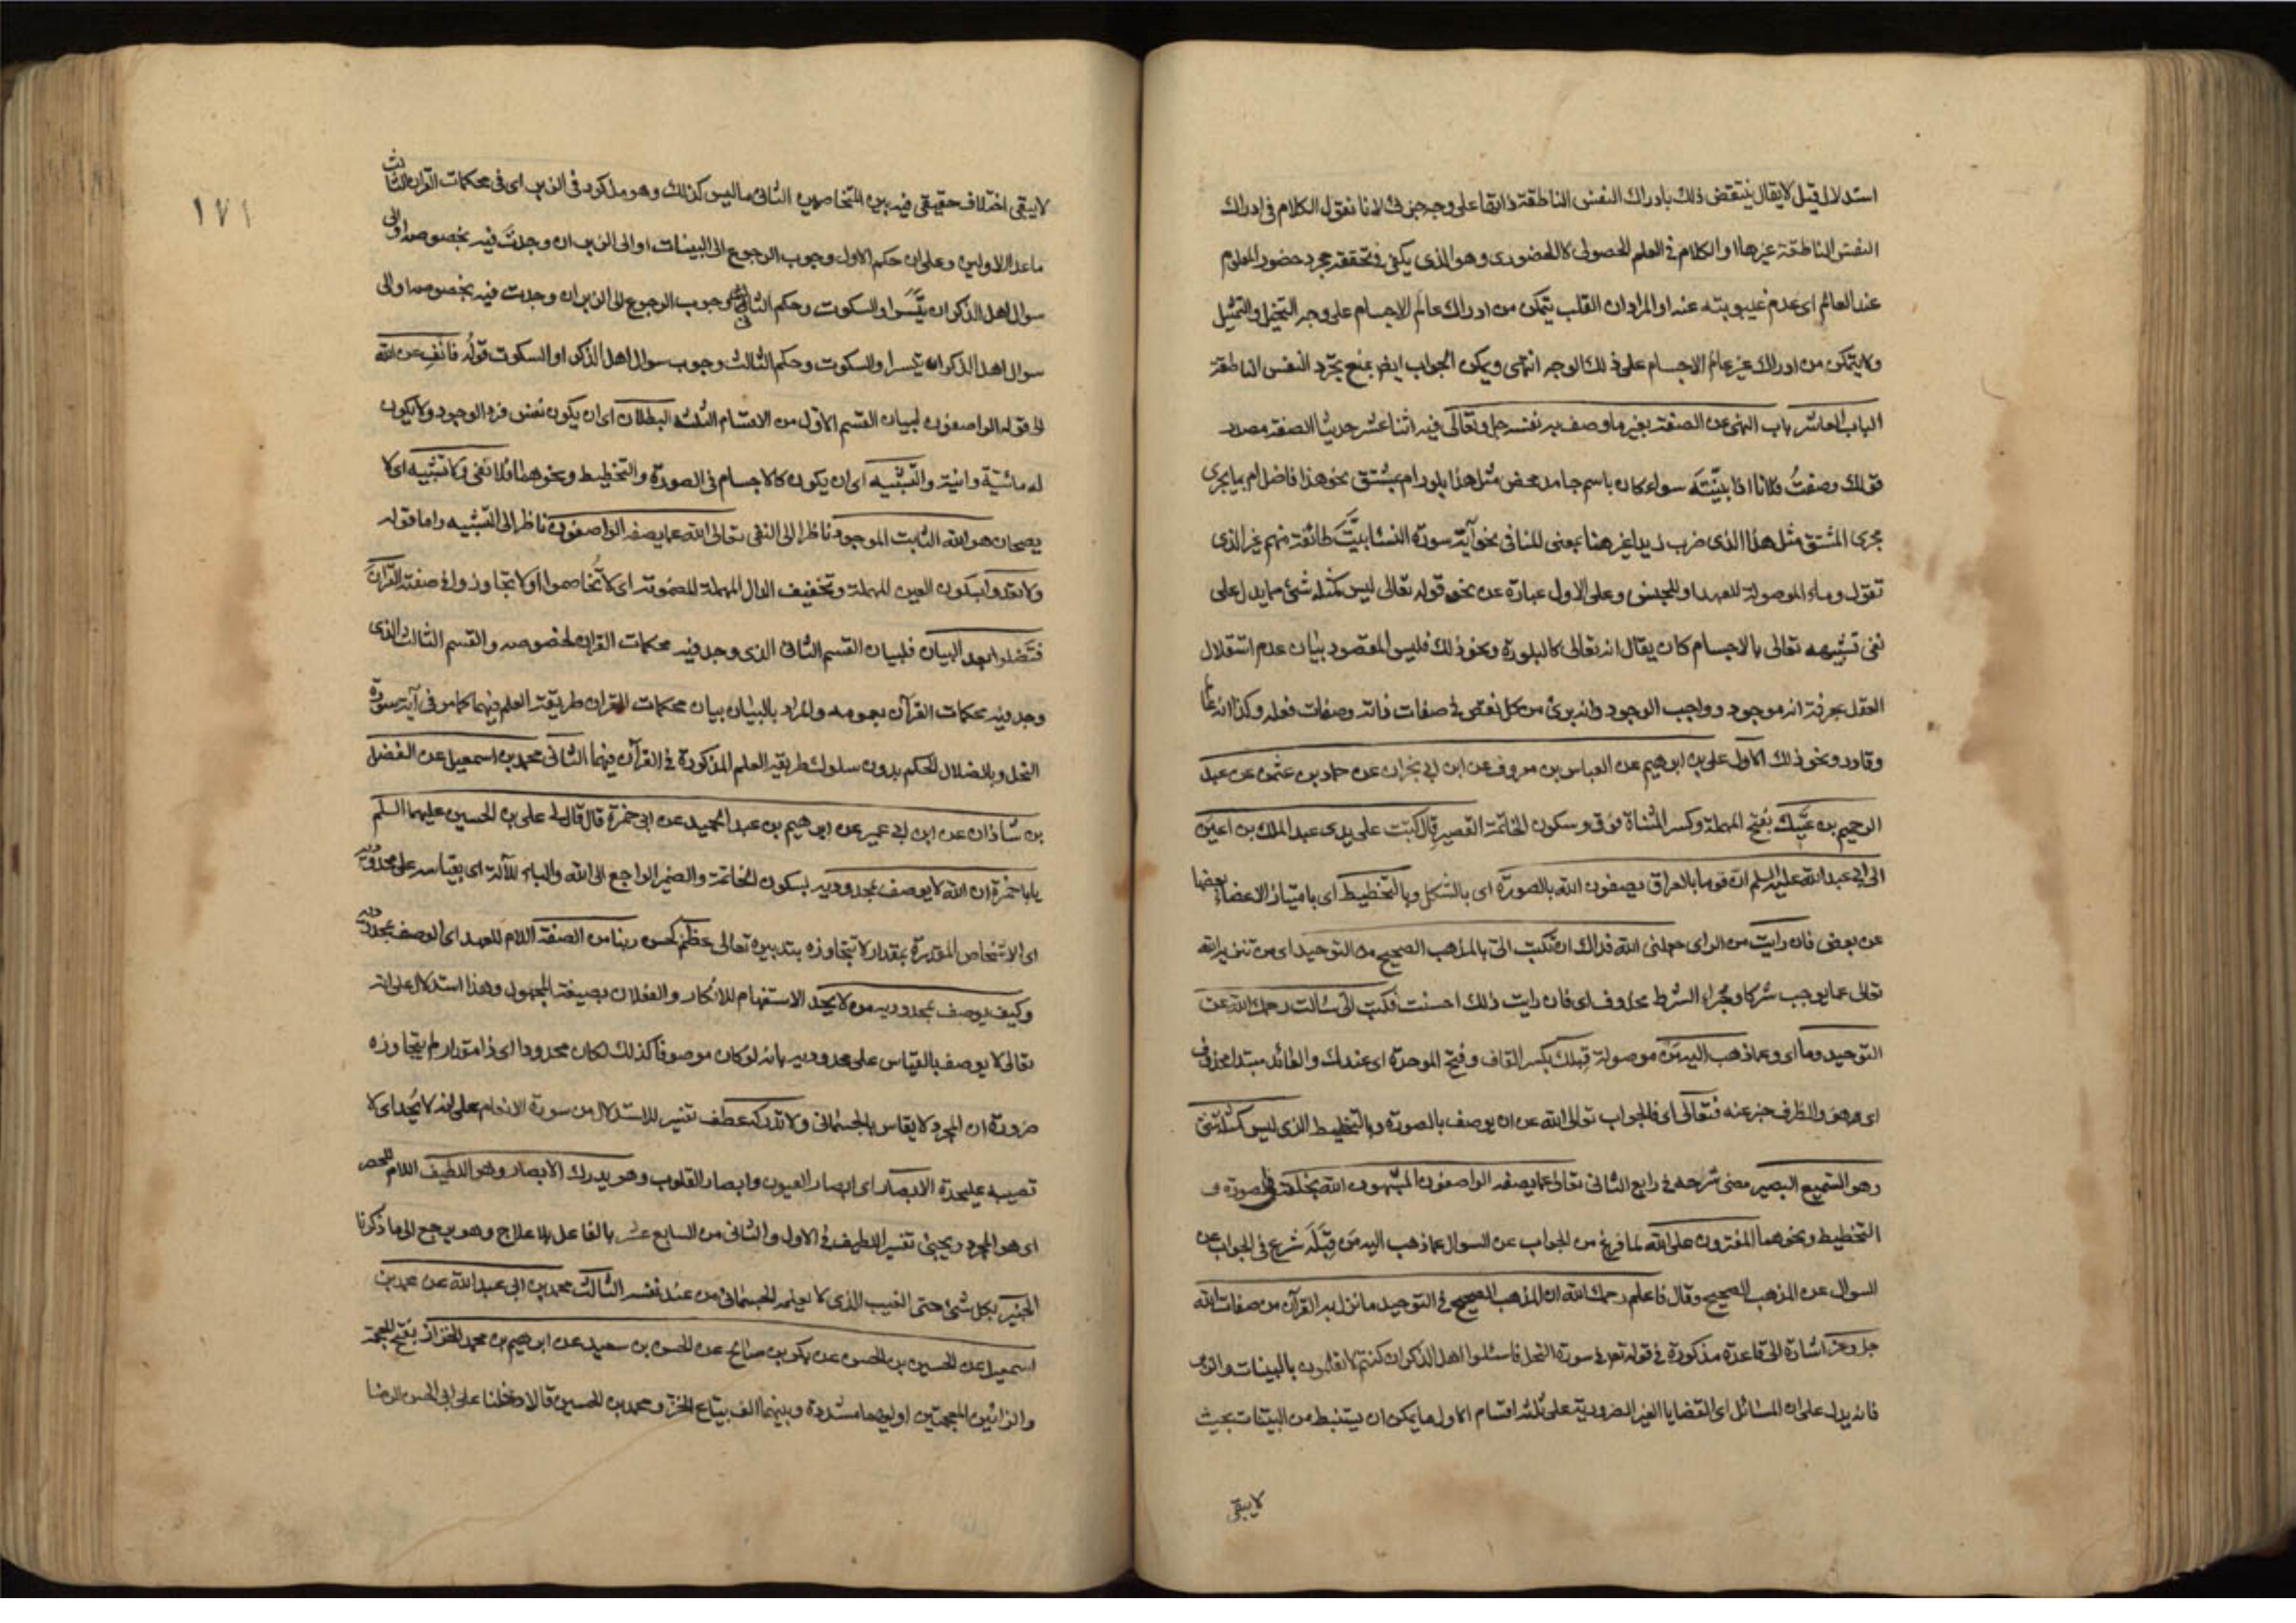 استدلال قيل لا يقال ينتقض ذلك بادراك النفس الناطقة ذاتها على وجه جزئى لانا نقول الكلام فى ادراك
النفس الناطقة غيرها او الكلام فى العلم الحصولى لا الحضورى وهو الذى يكفى فى تحققه مجرد حضور المعلوم
عند العالم اى عدم غيبوبته عنه او المراد ان القلب يتمكن من ادراك عالم الاجسام على وجه التخيل والتمثيل
ولا يتمكن من ادراك غير عالم الاجسام على ذلك الوجه انتهى ويمكن الجواب ايضا بمنع تجرد النفس الناطقة
الباب العاشر باب النهى عن الصفة بغير ما وصف به نفسه جل وتعالى فيه اثنا عشر حديثا الصفة مصدر
قولك وصفت فلانا اذا بينته سواء كان باسم جامد محض مثل هذا بلور ام بمشتق نحو هذا فاضل ام بما يجرى
مجرى المشتق مثل هذا الذى ضرب زيدا غير هنا بمعنى المنافى نحو آية سورة النسا بيت طائفة منهم غير الذى
تقول وما الموصولة للعهد او للجنس وعلى الاول عبارة عن نحو قوله تعالى ليس كمثله شئ مما يدل على
نفى تشبيهه تعالى بالاجسام كان يقال انه تعالى كالبلورة ونحو ذلك فليس المقصود بيان عدم استقلال
العقل بمعرفة انه موجود وواجب الوجود وانه برئ من كل نقص فى صفات ذاته وصفات فعله وكذا انه عالم
وقادر ونحو ذلك الاول على بن ابرهيم عن العباس بن معروف عن ابن ابى نجران عن حماد بن عثمن عن عبد
الرحيم بن عتيك بفتح المهملة وكسر المثناة فوق وسكون الخاتمة القصير قال كتبت على يدى عبد الملك بن اعين
الى ابى عبد الله عليه السلم ان قوما بالعراق يصفون الله بالصورة اى بالشكل وبالتخطيط اى بامتياز الاعضاء بعضها
عن بعض فان رايت من الراى جعلنى الله فداك ان تكتب الى بالمذهب الصحيح من التوحيد اى من تنزيه الله
تعالى عما يوجب شركا وجزاء الشرط محذوف اى فان رايت ذلك احسنت فكتب الى سالت رحمك الله عن
التوحيد وما اى وعما ذهب اليه من موصولة قبلك بكسر القاف وفتح الموحدة اى عندك والعائد مبتدا محذوف
اى من هو والظرف خبر عنه فتعالى اى فالجواب تعالى الله عن ان يوصف بالصورة وبالتخطيط الذى ليس كمثله شئ
وهو السميع البصير مضى شرحه فى رابع الثانى تعالى عما يصفه الواصفون المشبهون الله بخلقه فى الصورة و
التخطيط ونحوهما المفترون على الله لما فرغ من الجواب عن السوال عما ذهب اليه من قبله شرع فى الجواب عن
السوال عن المذهب الصحيح وقال فاعلم رحمك الله ان المذهب الصحيح فى التوحيد ما نزل به القرآن من صفات الله
جل وعز اشارة الى قاعدة مذكورة فى قوله تعالى فى سورة النحل فاسئلوا اهل الذكر ان كنتم لا تعلمون بالبينات والزبر
فانه يدل على ان المسائل اى القضايا الغير الضرورية على ثلثة اقسام الاول ما يمكن ان يستنبط من البينات بحيث
لا يبقى
١٧١
لا يبقى اختلاف حقيقى فيه بين المتخاصمين الثانى ما ليس كذلك وهو مذكور فى الزبر اى فى محكمات القرآن الثالث
ما عدا الاولين وعلى ان حكم الاول وجوب الرجوع الى البينات او الى الزبر ان وجدت فيه بخصوصه او الى
سوال اهل الذكر ان تيسر او السكوت وحكم الثانى وجوب الرجوع الى الزبر ان وجدت فيه بخصوصه او الى
سوال اهل الذكر ان تيسر او السكوت وحكم الثالث وجوب سوال اهل الذكر او السكوت قوله فانف عن الله
الى قوله الواصفون لبيان القسم الاول من الاقسام الثلثة البطلان اى ان يكون نفس فرد الوجود ولا يكون
له مائية وانية والتشبيه اى ان يكون كالاجسام فى الصورة والتخطيط ونحوهما فلا نفى ولا تشبيه اى لا
يصحان هو الله الثابت الموجود ناظر الى النفى تعالى الله عما يصفه الواصفون ناظر الى التشبيه واما قوله
ولا تعدوا بسكون العين المهملة وتخفيف الدال المهملة المضمومة اى لا تخاصموا او لا تجاوزوا فى صفته القرآن
فتضلوا بعد البيان فلبيان القسم الثانى الذى وجد فيه محكمات القرآن بخصوصه والقسم الثالث الذى
وجد فيه محكمات القرآن بعمومه والمراد بالبيان بيان محكمات القرآن طريقة العلم فيهما كما مر فى آية سورة
النحل وبالضلال الحكم بدون سلوك طريقة العلم المذكورة فى القرآن فيهما الثانى محمد بن اسمعيل عن الفضل
بن شاذان عن ابن ابى عمير عن ابرهيم بن عبد الحميد عن ابى حمزة قال قال لى على بن الحسين عليهما السلم
يا با حمزة ان الله لا يوصف بمحدودية بسكون الخاتمة والضمير الراجع الى الله والباء للآلة اى بقياسه على محدوديه
اى الاشخاص المقدرة بمقدار لا تتجاوزه بتدبيره تعالى عظم كحسن ربنا من الصفة اللام للعهد اى الوصف بمحدوديه
وكيف يوصف بمحدودية من لا يحد الاستفهام للانكار والفعلان بصيغة المجهول وهذا استدلال على انه
تعالى لا يوصف بالقياس على محدوديه بانه لو كان موصوفا كذلك لكان محدودا اى ذا مقدار لم يتجاوزه
ضرورة ان المجرد لا يقاس بالجسمانى ولا تدركه عطف تفسير للاستدلال من سورة الانعام على انه لا يحد اى لا
تصيبه عليحدة الابصار اى ابصار العيون وابصار القلوب وهو يدرك الابصار وهو اللطيف اللام للحصر
اى هو المجرد ويجيئ تفسير اللطيف فى الاول والثانى من السابع عشر بالفاعل بلا علاج وهو يرجع الى ما ذكرنا
الخبير بكل شئ حتى الغيب الذى لا يعلمه الجسمانى من عند نفسه الثالث محمد بن ابى عبد الله عن محمد بن
اسمعيل عن الحسين بن الحسن عن بكر بن صالح عن الحسن بن سعيد عن ابرهيم بن محمد الخزاز بفتح المعجمة
والزائين المعجمتين اوليهما مشددة وبينهما الف بياع الخز ومحمد بن الحسين قالا دخلنا على ابى الحسن الرضا